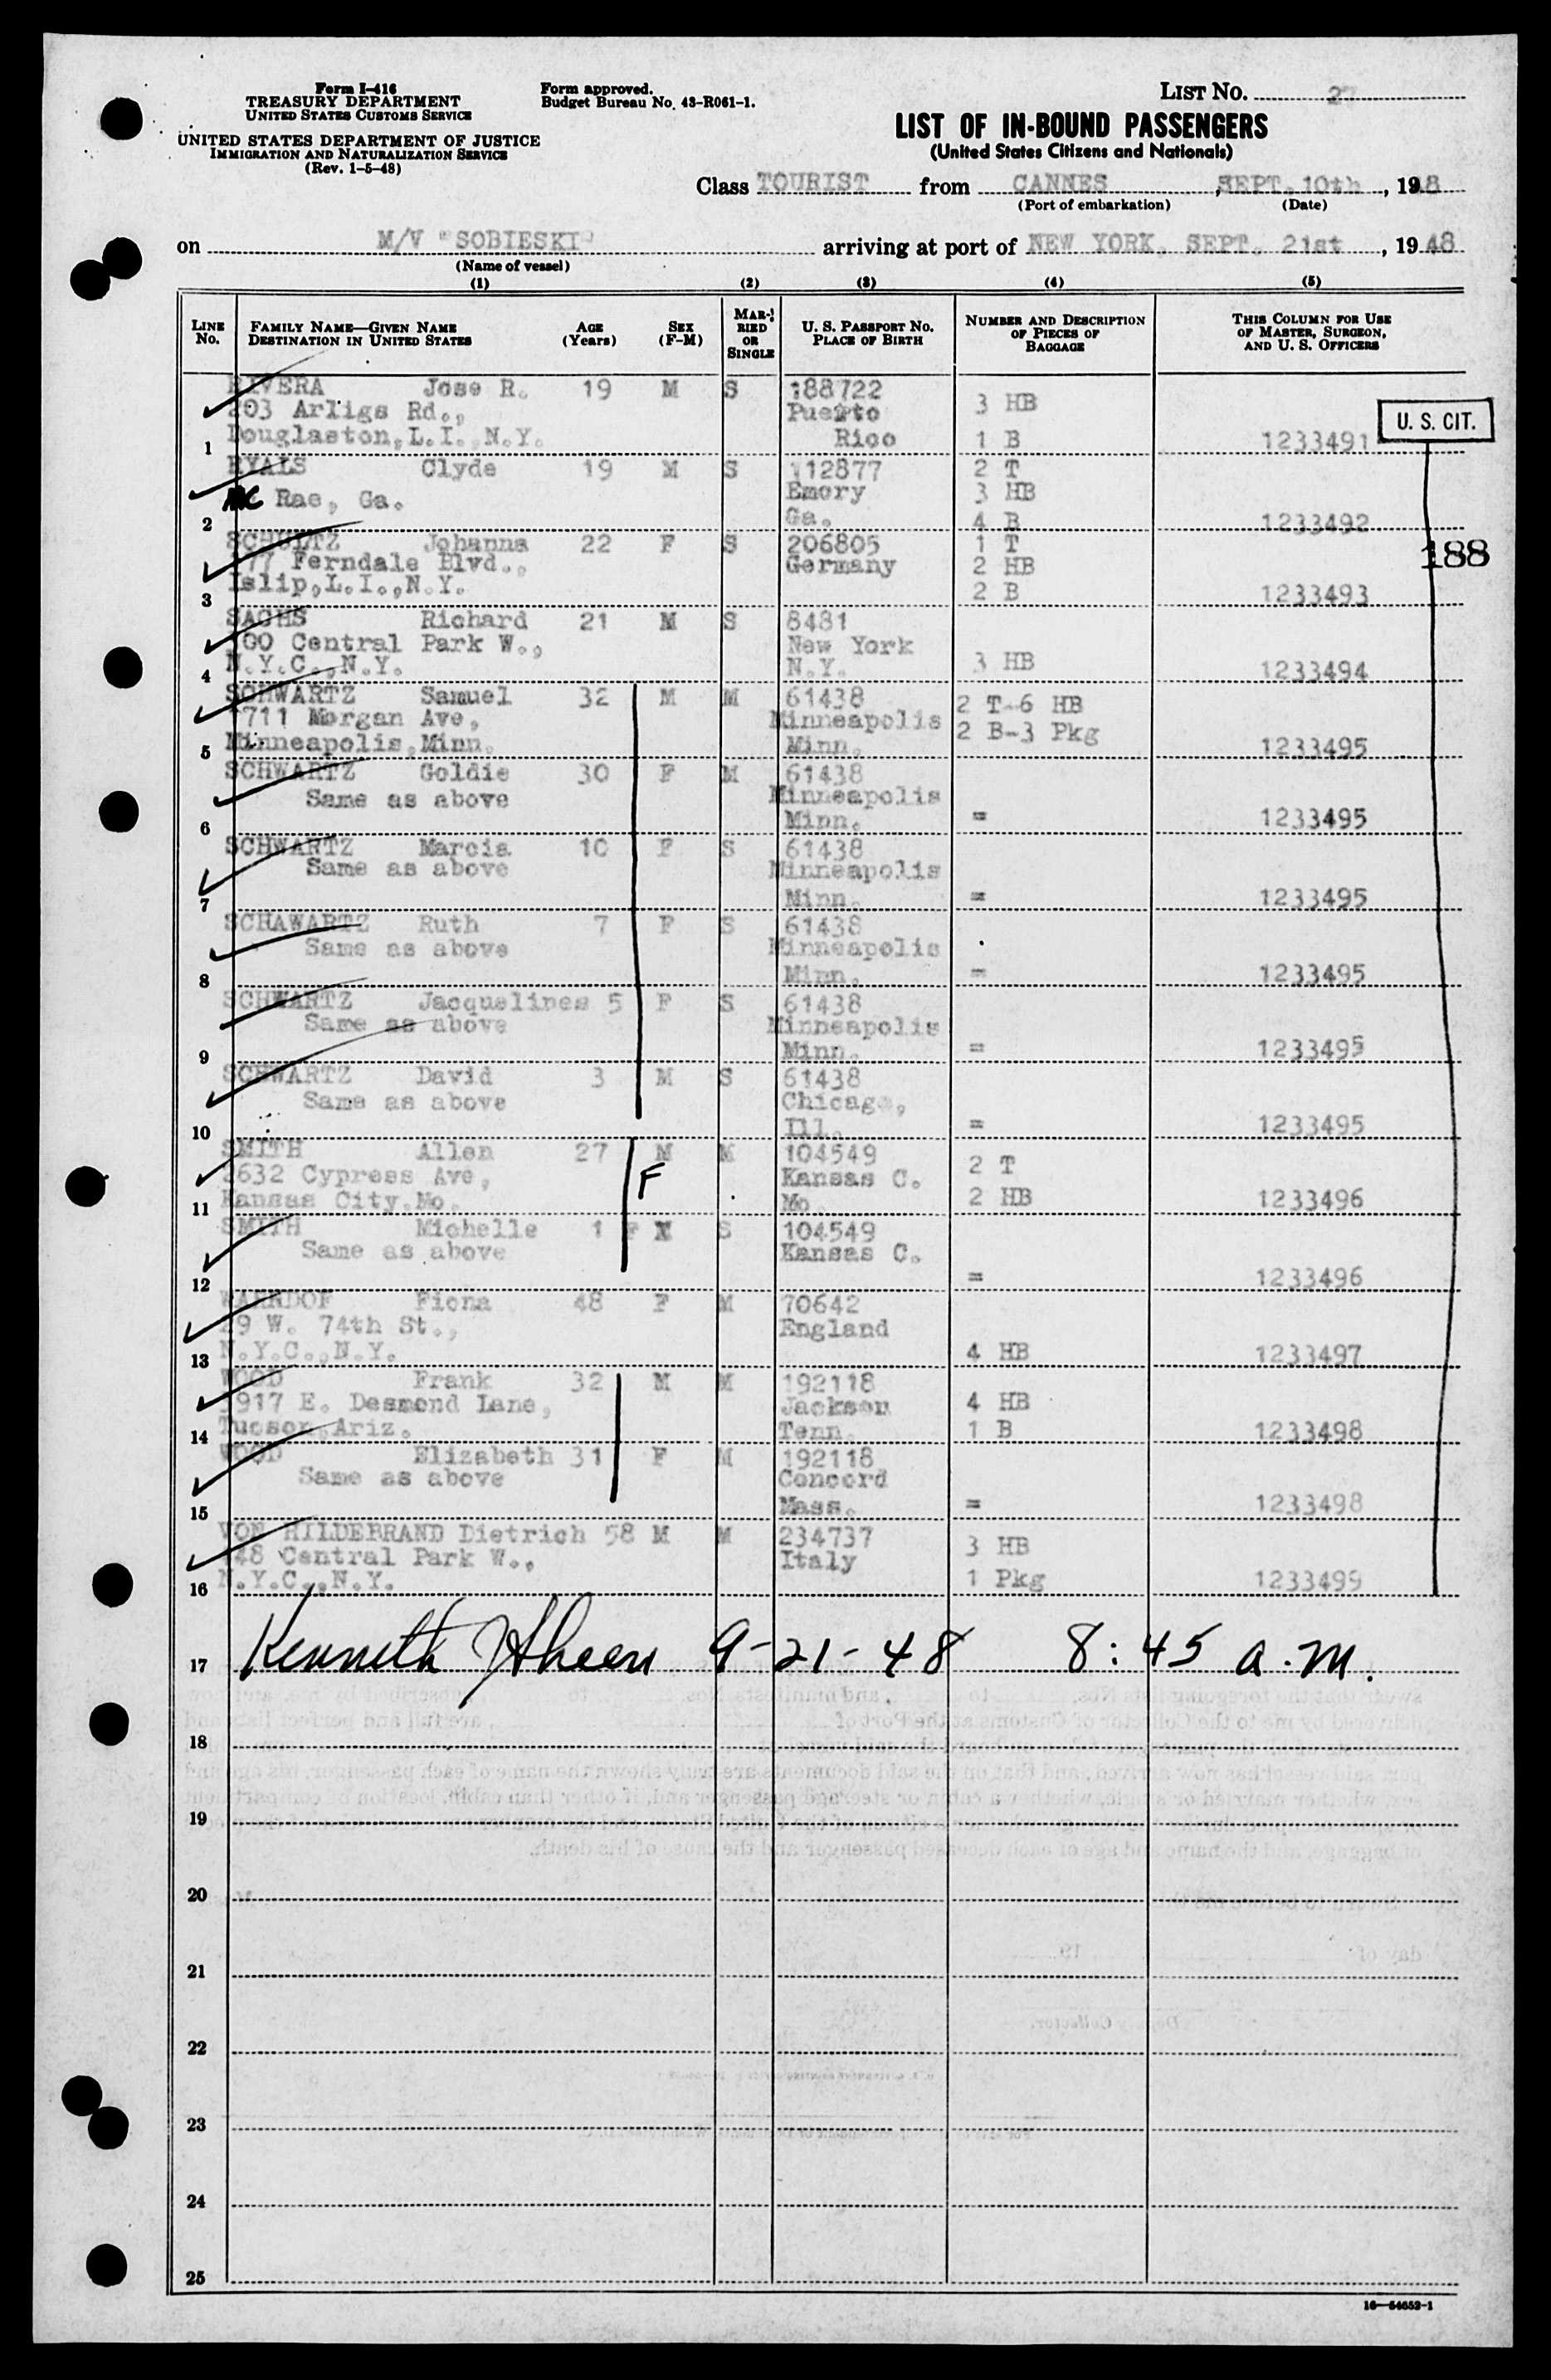 Form I-416
TREASURY DEPARTMENT
UNITED STATES CUSTOMS SERVICE
UNITED STATES DEPARTMENT OF JUSTICE
IMMIGRATION AND NATURALIZATION SERVICE
(Rev. 1-5-48)
Form approved.
Budget Bureau No. 43-R061-1.
LIST NO. 27
LIST OF IN-BOUND PASSENGERS
(United States Citizens and Nationals)
Class TOURIST from CANNES, SEPT. 10th, 1948
(Port of embarkation) (Date)
on M/V "SOBIESKI" arriving at port of NEW YORK, SEPT. 21st, 1948
(Name of vessel)
(1) (2) (3) (4) (5)
LINE No. FAMILY NAME—GIVEN NAME DESTINATION IN UNITED STATES AGE (Years) SEX (F-M) MARRIED OR SINGLE U. S. PASSPORT NO. PLACE OF BIRTH NUMBER AND DESCRIPTION OF PIECES OF BAGGAGE THIS COLUMN FOR USE OF MASTER, SURGEON, AND U. S. OFFICERS
RIVERA Jose R. 19 M S 188722
203 Arligs Rd., Puerto 3 HB
U. S. CIT.
1 Douglaston, L.I., N.Y. Rico 1 B 1233491
RYALS Clyde 19 M S 112877 2 T
Mc Rae, Ga. Emory 3 HB
2 Ga. 4 B 1233492
SCHULTZ Johanna 22 F S 206805 1 T
77 Ferndale Blvd., Germany 2 HB
188
3 Islip, L.I., N.Y. 2 B 1233493
SACHS Richard 21 M S 8481
100 Central Park W., New York
4 N.Y.C., N.Y. N.Y. 3 HB 1233494
SCHWARTZ Samuel 32 M M 61438 2 T-6 HB
1711 Morgan Ave, Minneapolis 2 B-3 Pkg
5 Minneapolis, Minn. Minn. 1233495
SCHWARTZ Goldie 30 F M 61438
Same as above Minneapolis
6 Minn. = 1233495
SCHWARTZ Marcia 10 F S 61438
Same as above Minneapolis
7 Minn. = 1233495
SCHAWARTZ Ruth 7 F S 61438
Same as above Minneapolis
8 Minn. = 1233495
SCHWARTZ Jacquelines 5 F S 61438
Same as above Minneapolis
9 Minn. = 1233495
SCHWARTZ David 3 M S 61438
Same as above Chicago,
10 Ill. = 1233495
SMITH Allen 27 M M 104549 2 T
2632 Cypress Ave, F Kansas C.
11 Kansas City, Mo. Mo. 2 HB 1233496
SMITH Michelle 1 F S 104549
Same as above Kansas C.
12 = 1233496
WARNDOF Fiona 48 F M 70642
19 W. 74th St., England
13 N.Y.C., N.Y. 4 HB 1233497
WOOD Frank 32 M M 192118
3917 E. Desmond Lane, Jackson 4 HB
14 Tucson, Ariz. Tenn. 1 B 1233498
WOOD Elizabeth 31 F M 192118
Same as above Concord
15 Mass. = 1233498
VON HILDEBRAND Dietrich 58 M M 234737 3 HB
448 Central Park W., Italy
16 N.Y.C., N.Y. 1 Pkg 1233499
17 Kenneth 9-21-48 8:45 a.m.
18
19
20
21
22
23
24
25
16—54653-1